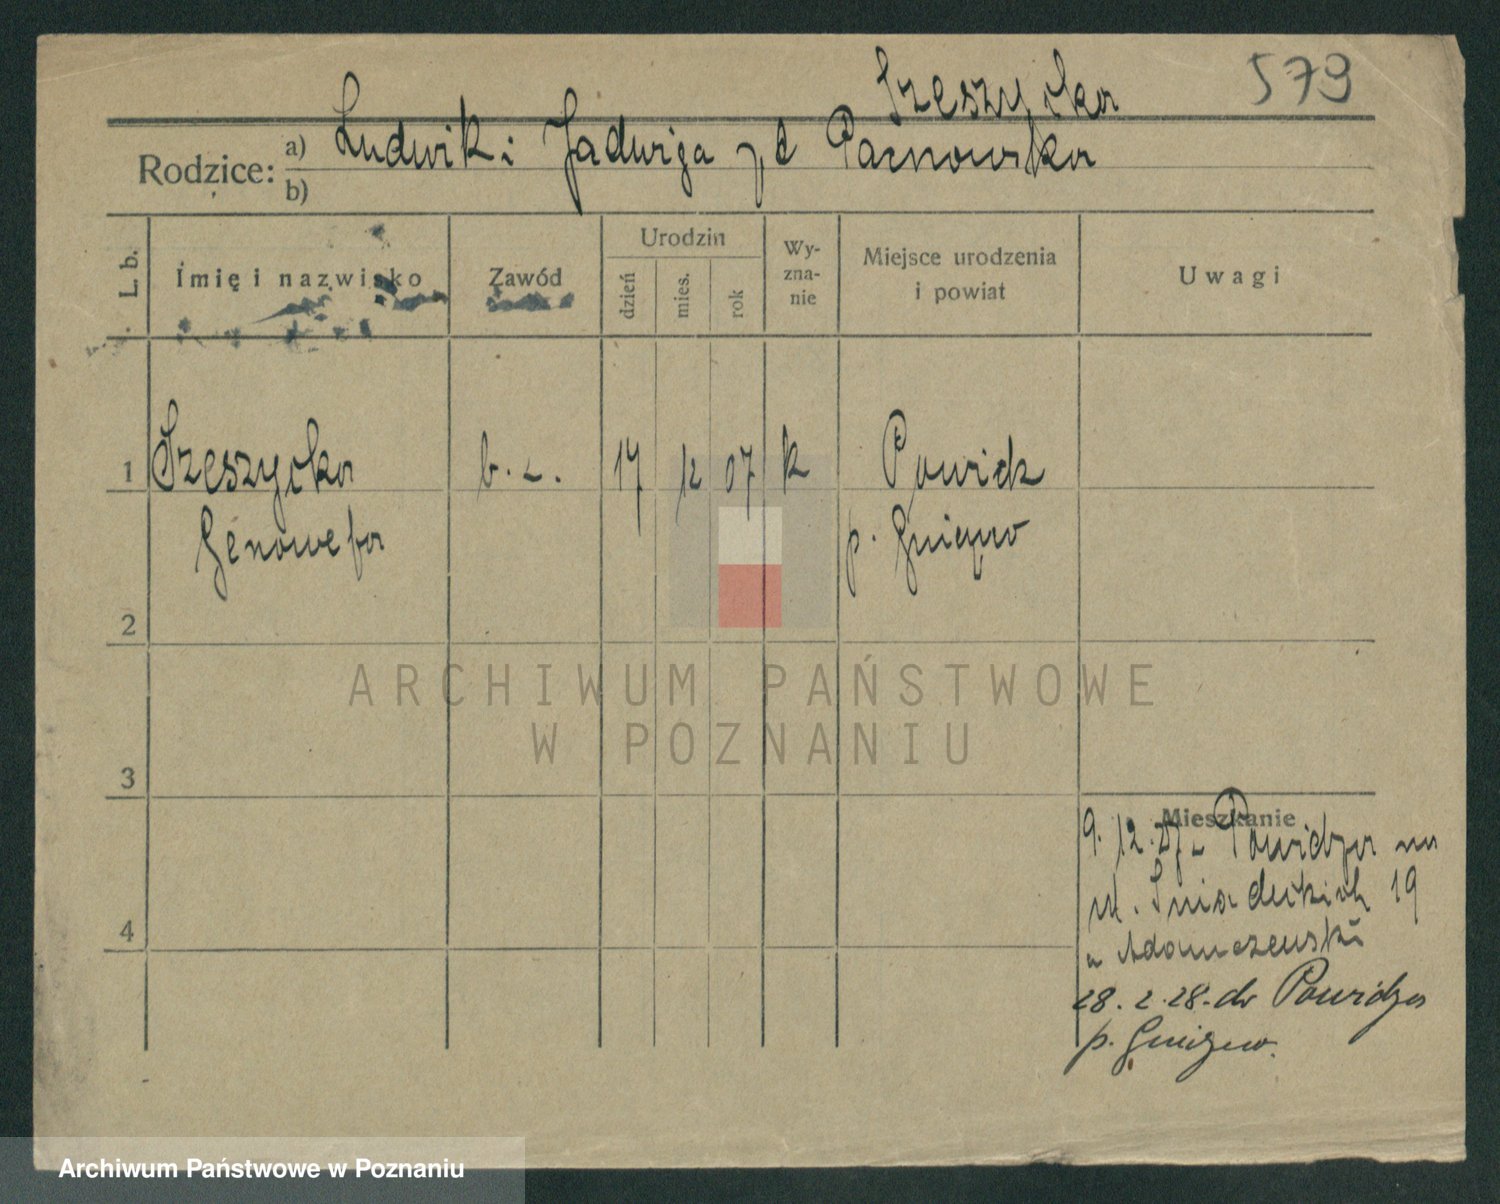 579
Szeszycka
Rodzice: a) Ludwik i Jadwiga z d Parnowska
b)
L. b.
Imię i nazwisko
Zawód
Urodzin
dzień
mies.
rok
Wy-
zna-
nie
Miejsce urodzenia
i powiat
Uwagi
1 Szeszycka b. z. 17 12 07 k Powidz
Genowefa p. Gniezno
2
3
4
ARCHIWUM PAŃSTWOWE
W POZNANIU
Mieszkanie
9. 12. 27 z Powidza na
ul. Śniadeckich 19
u Adamczewski
28. 2. 28. do Powidza
p. Gniezno.
Archiwum Państwowe w Poznaniu